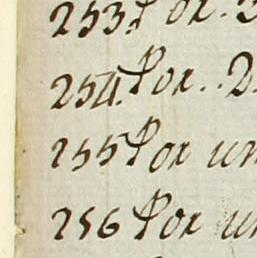 253. Por.
254. Por.. 2
255 Por un
256 Por un